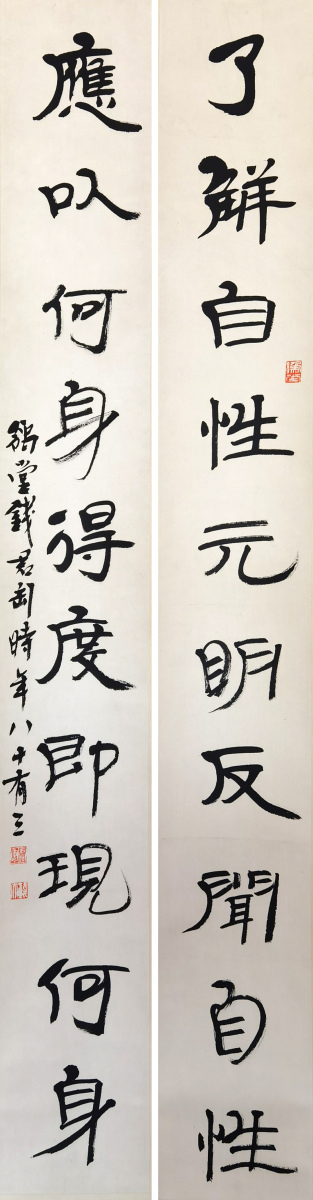 了解自性元明反聞自性
應以何身得度即現何身
錢君匋時年八十有三